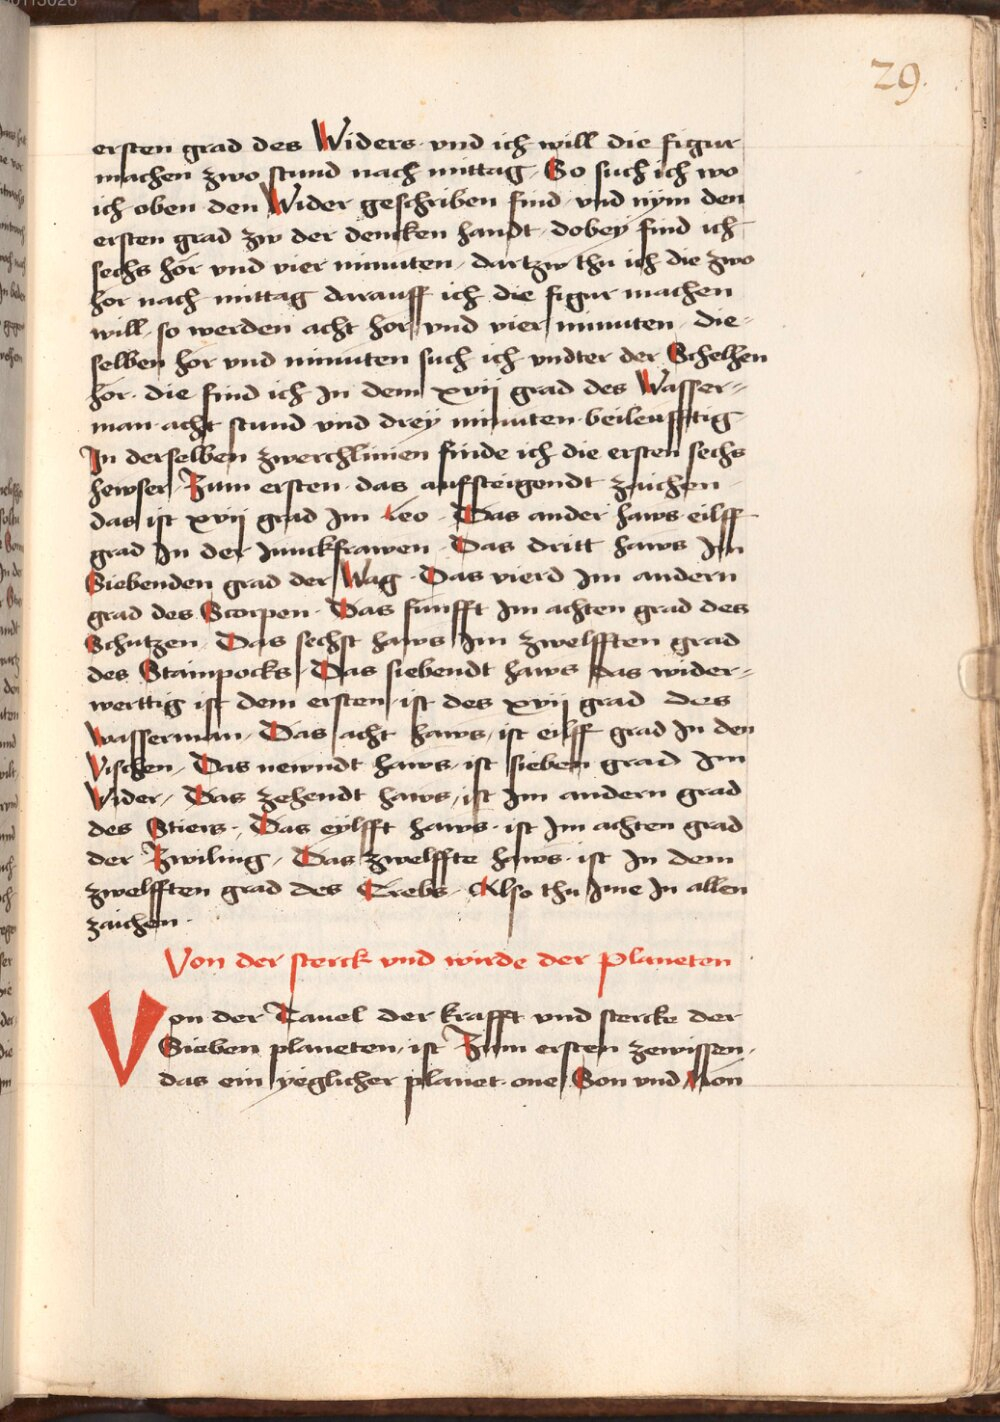 29.
ersten grad des Widers · vnd ich will die figur
machen zwo stund nach mittag · So such ich wo
ich oben den Wider geschriben find · vnd nym den
ersten grad zw der dencken handt · dobey find ich
sechs hor vnd vier minuten / dartzw thu ich die zwo
hor nach mittag darauff ich die figur machen
will · so werden acht hor vnd vier minuten · die-
selben hor vnd minuten such ich vndter der Schelhen
hor · die find ich In dem xvij grad des Wasser=
man · acht stund vnd drey minuten · beileufftig
In derselben zwerchlinien finde ich die ersten sechs
hewser / Zum ersten · das aufsteigendt zaichen
das ist xvij grad Im Leo · Das ander haws · eilff
grad In der Junckfrawen · Das dritt haws Im
Siebenden grad der Wag · Das vierd Im andern
grad des Scorpen · Das funfft Im achten grad des
Schutzen / Das sechst haws Im zwelfften grad
des Stainpocks / Das siebendt haws das wider=
werttig ist dem ersten / ist des xvij grad des
Wasserman / Das acht haws / ist eilff grad In den
Vischen / Das newndt haws / ist sieben grad Im
Wider / Das zehendt haws / ist Im andern grad
des Stiers · / Das eylfft haws · ist Im achten grad
der Zwiling / Das zwelffte haws · ist In dem
zwelfften grad des Crebs · Also thu Ime In allen
zaichen ·
Von der sterck vnd wirde der planeten
Von der Tauel der krafft vnd stercke der
Sieben planeten / ist Zum ersten zewissen ·
das ein yeglicher planet · one Son vnd Mon